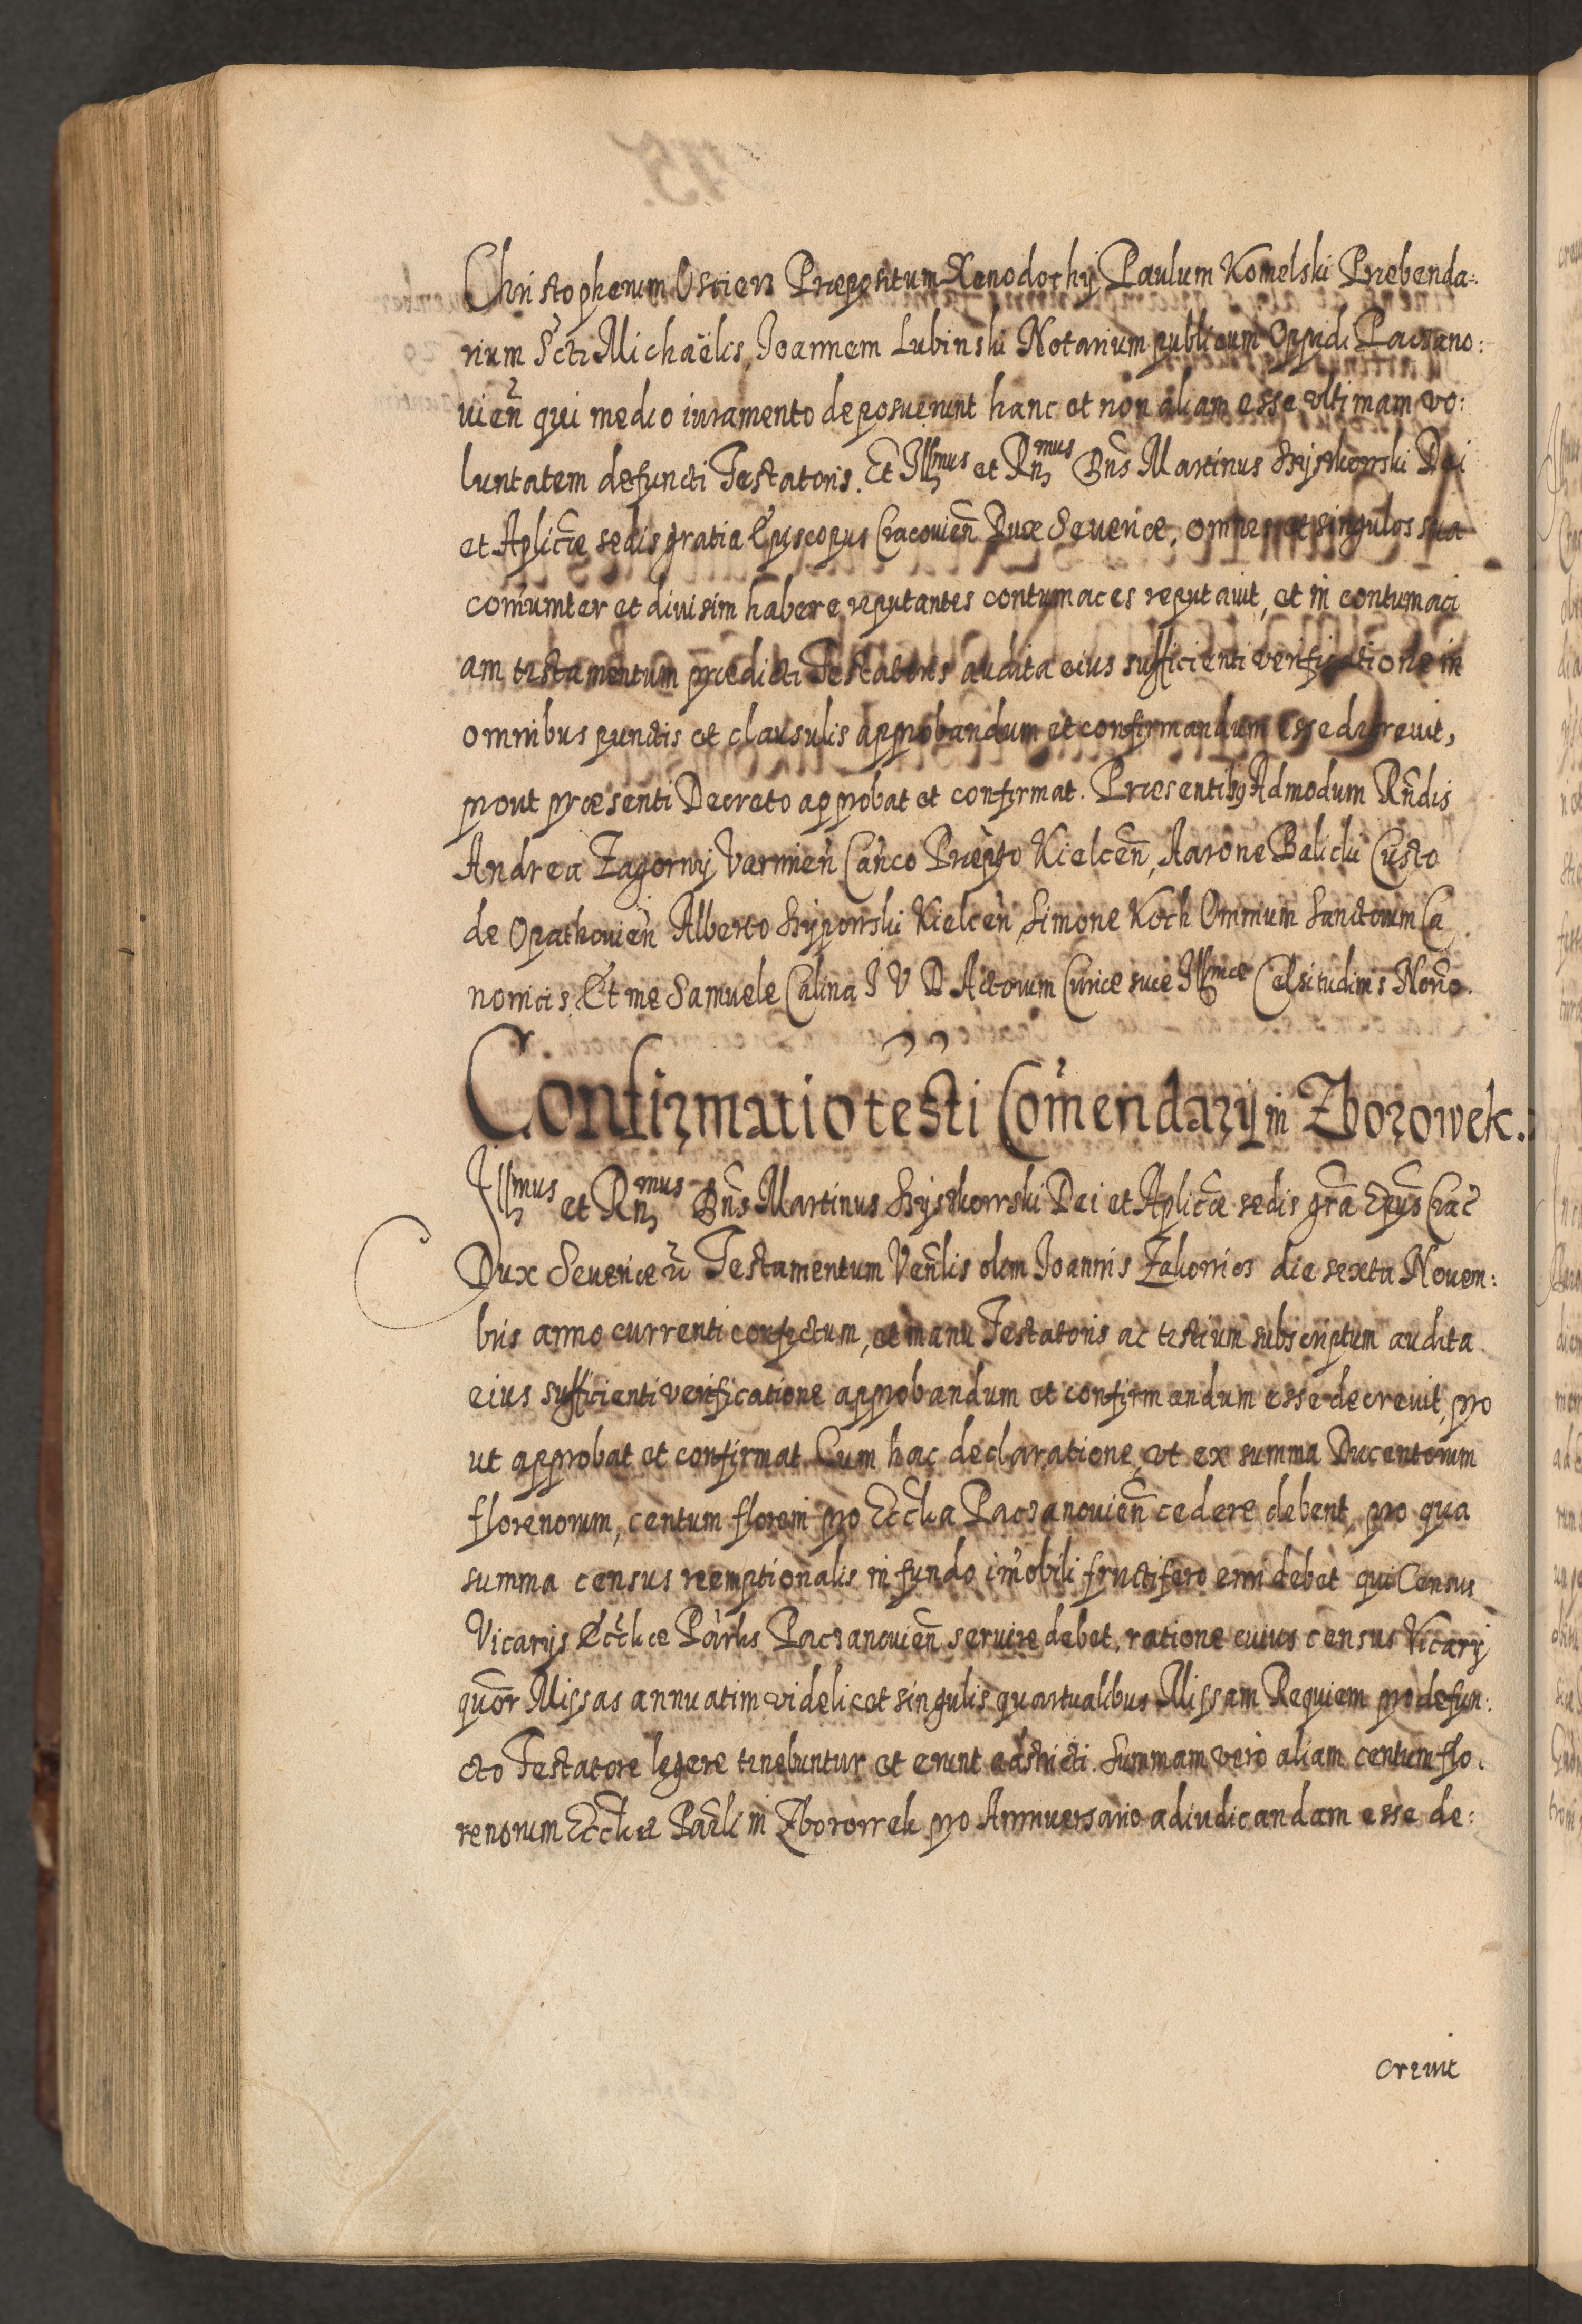 Christopherum Oscien Præpositum Xenodochij Paulum Komelski Præbenda:
rium Scti Michaëlis, Joannem Lubinski Notarium publicum Oppidi Paczano:
uien̄ qui medio iuramento deposuerunt hanc et non aliam esse vltimam vo:
luntatem defuncti Testatoris. Et Illmus et Rnmus Dn̄s Martinus Szyszkowski Dei
et Aplicæ sedis gratia Episcopus Cracouien̄ Dux Seueriæ, omnes et singulos sua
com̄uniter et diuisim habere reputantes contumaces reputauit, et in contumaci
am testamentum prædicti Testatoris audita eius sufficienti verificatione in
omnibus punctis et clausulis approbandum et confirmandum esse decreuit,
prout præsenti Decreto approbat et confirmat. Præsentibus Admodum Rn̄dis
Andrea Zagorny Varmien̄ Can̄co Præpto Kielcen̄, Aarone Balicki Custo
de Opathouien̄ Alberto Lipowski Kielcen̄ Simone Koch Omnium Sanctorum Ca
nonicis. Et me Samuele Calina J V D Actorum Curiæ suæ Illmæ Celsitudinis Not̄o.
Confirmatio testi Com̄endarij in Zborowek.
Illmus et Rnmus Dn̄s Martinus Szyszkowski Dei et Aplicæ sedis gr̄a Ep̄us Crac̄
Dux Seueriæ Testamentum Ven̄lis olim Joannis Zakowicz die sexta Nouem:
bris anno currenti confectum, et manu Testatoris ac testium subscriptum audita
eius sufficienti verificatione approbandum et confirmandum esse decreuit, pro
ut approbat et confirmat. Cum hac declaratione, vt ex summa Ducentorum
florenorum, centum floreni pro Eccl̄ia Paczanouien̄ cedere debent, pro qua
summa census reemptionalis in fundo im̄obili fructifero emi debet qui Census
Vicarijs Eccl̄iæ Par̄lis Paczanouien̄ seruire debet, ratione cuius census Vicarij
quor̄ Missas annuatim videlicet singulis quartualibus Missam Requiem pro defun:
cto Testatore legere tenebuntur et erunt adstricti. Summam vero aliam centum flo.
renorum Eccl̄iæ Par̄li in Zborowek pro Anniuersario adiudicandam esse de:
creuit